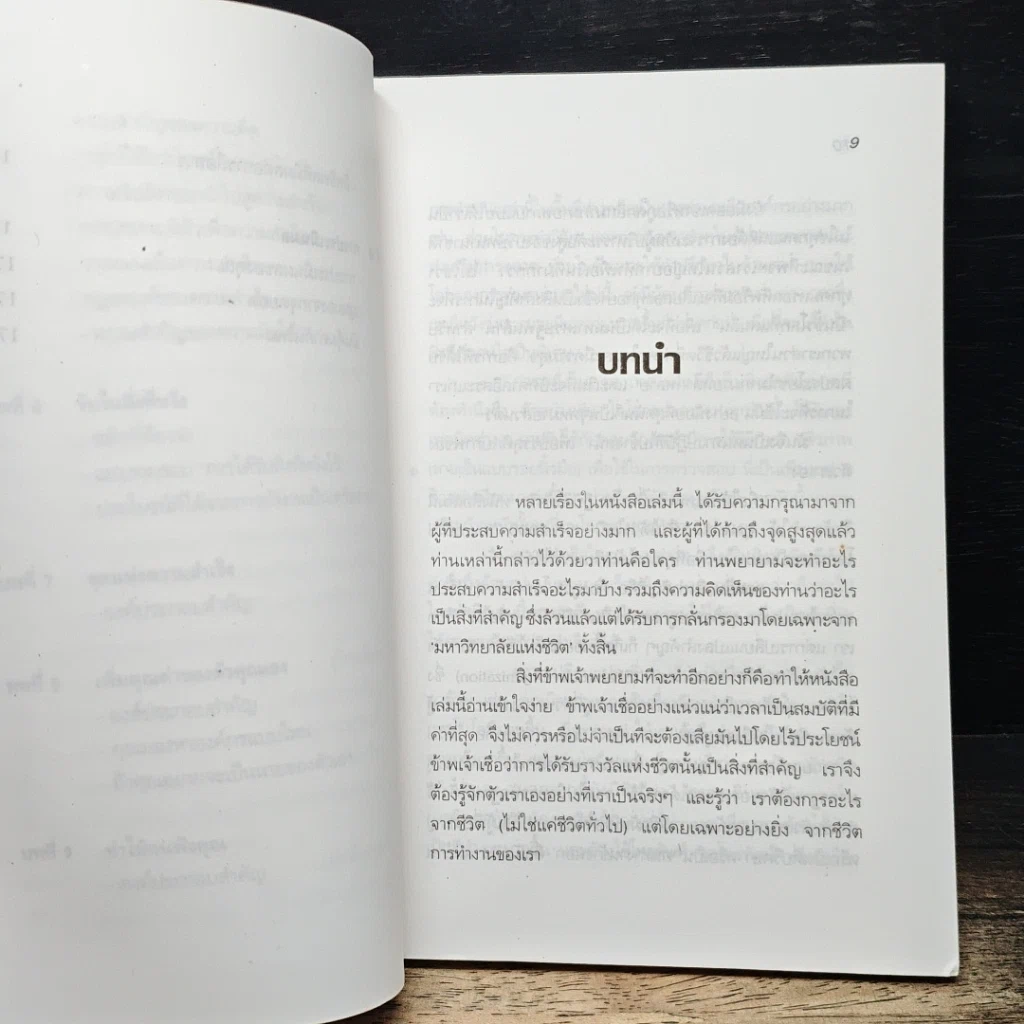 9
บทนำ
หลายเรื่องในหนังสือเล่มนี้ ได้รับความกรุณามาจาก
ผู้ที่ประสบความสำเร็จอย่างมาก และผู้ที่ได้ก้าวถึงจุดสูงสุดแล้ว
ท่านเหล่านี้กล่าวไว้ด้วยว่าท่านคือใคร ท่านพยายามจะทำอะไร
ประสบความสำเร็จอะไรมาบ้าง รวมถึงความคิดเห็นของท่านว่าอะไร
เป็นสิ่งที่สำคัญ ซึ่งล้วนแล้วแต่ได้รับการกลั่นกรองมาโดยเฉพาะจาก
'มหาวิทยาลัยแห่งชีวิต' ทั้งสิ้น
สิ่งที่ข้าพเจ้าพยายามที่จะทำอีกอย่างก็คือทำให้หนังสือ
เล่มนี้อ่านเข้าใจง่าย ข้าพเจ้าเชื่ออย่างแน่วแน่ว่าเวลาเป็นสมบัติที่มี
ค่าที่สุด จึงไม่ควรหรือไม่จำเป็นที่จะต้องเสียมันไปโดยไร้ประโยชน์
ข้าพเจ้าเชื่อว่าการได้รับรางวัลแห่งชีวิตนั้นเป็นสิ่งที่สำคัญ เราจึง
ต้องรู้จักตัวเราเองอย่างที่เราเป็นจริงๆ และรู้ว่า เราต้องการอะไร
จากชีวิต (ไม่ใช่แค่ชีวิตทั่วไป) แต่โดยเฉพาะอย่างยิ่ง จากชีวิต
การทำงานของเรา